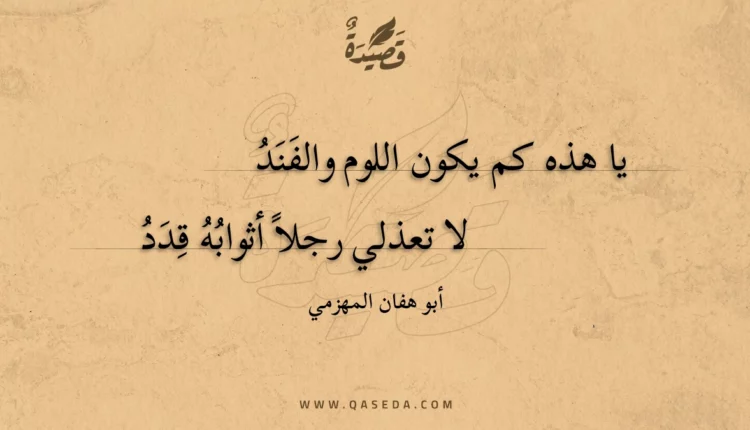 قَصِيْدَةٌ
يا هذه كم يكون اللوم والفَنَدُ
لا تعذلي رجلاً أثوابُهُ قِدَدُ
أبو هفان المهزمي
WWW.QASEDA.COM